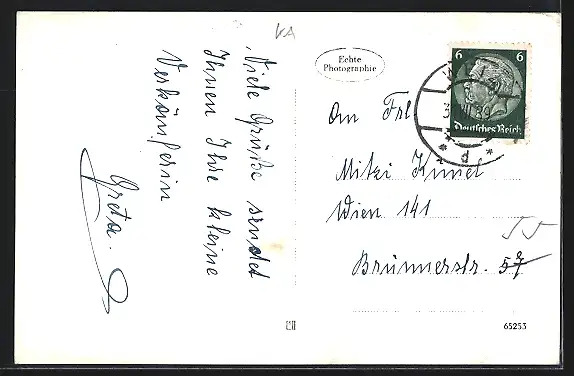 KA
Viele Grüße sendet
Ihnen Ihre kleine
Verkäuferin
Greta.
Echte
Photographie
6 6
Deutsches Reich
An Frl
Mitzi Kunel
Wien 141
Brünnerstr. 57
65253